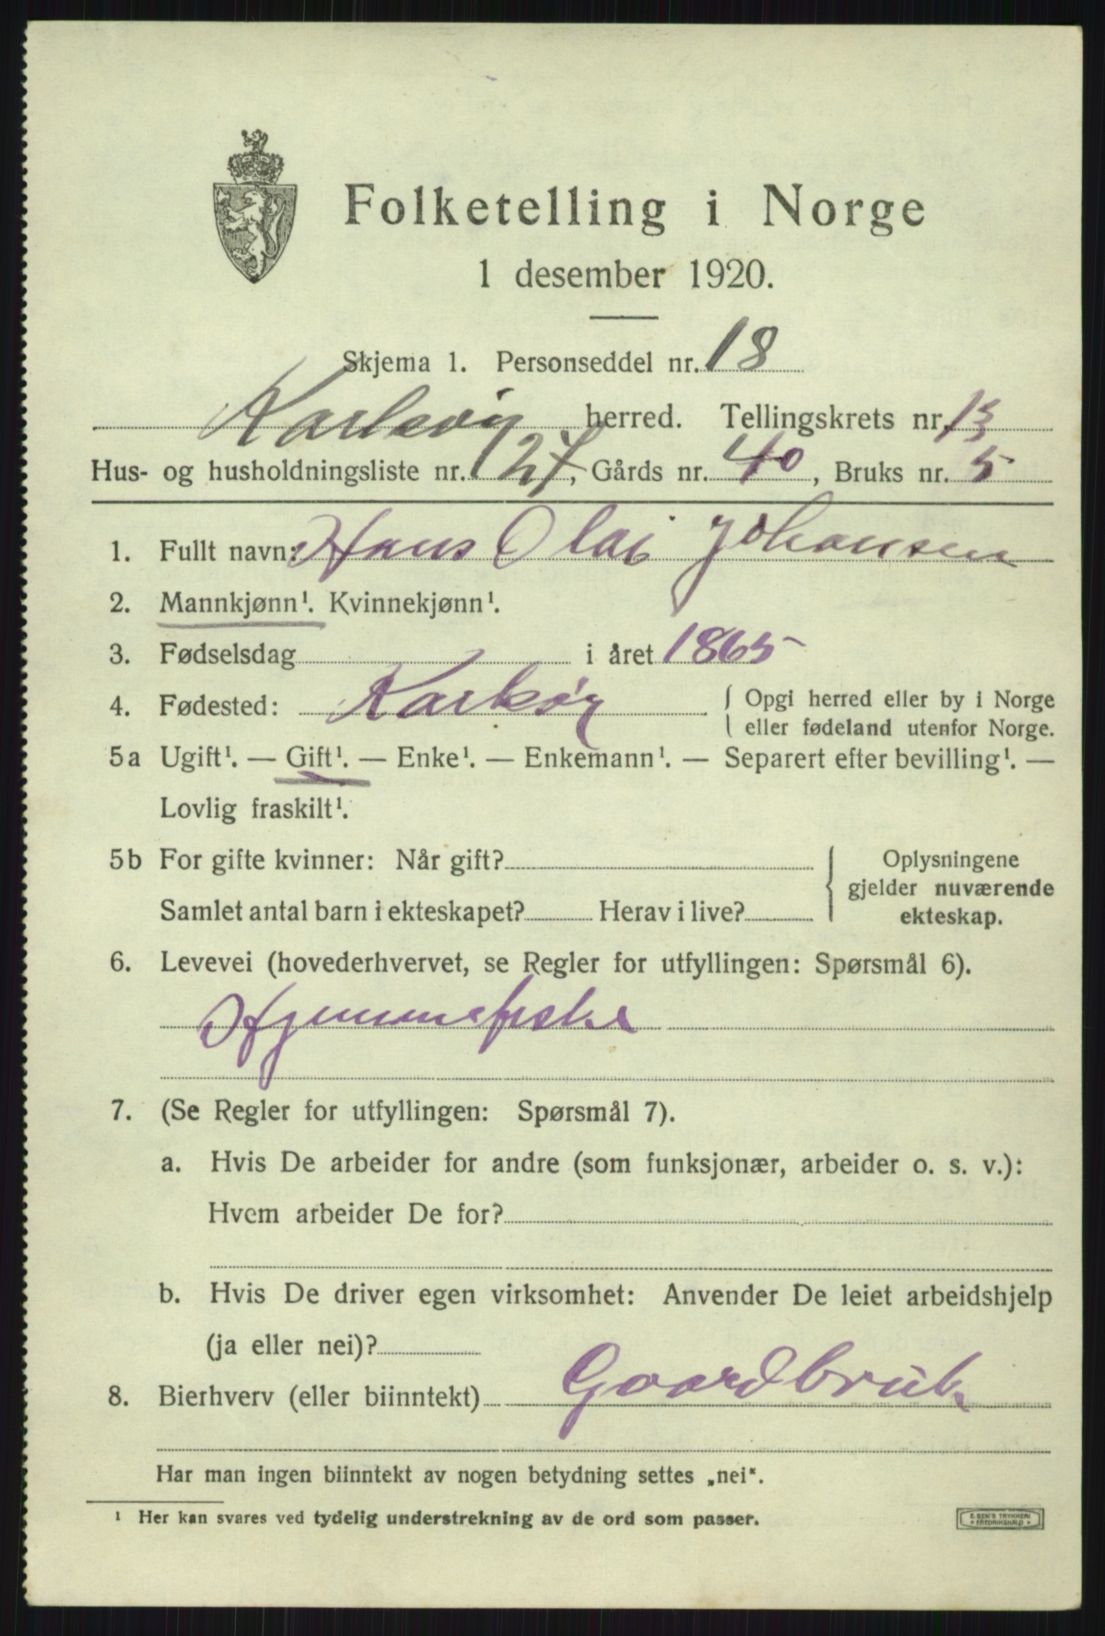 Folketelling i Norge
1 desember 1920.
Skjema 1. Personseddel nr. 18
Karlsøy herred. Tellingskrets nr. 13
Hus- og husholdningsliste nr. 127, Gårds nr. 40, Bruks nr. 5
1. Fullt navn: Hans Olai Johansen
2. Mannkjønn¹. Kvinnekjønn¹.
3. Fødselsdag i året 1865
4. Fødested: Karlsøy { Opgi herred eller by i Norge
eller fødeland utenfor Norge.
5a Ugift¹. — Gift¹. — Enke¹. — Enkemann¹. — Separert efter bevilling¹. —
Lovlig fraskilt¹.
5b For gifte kvinner: Når gift? { Oplysningene
gjelder nuværende
Samlet antal barn i ekteskapet? Herav i live? ekteskap.
6. Levevei (hovederhvervet, se Regler for utfyllingen: Spørsmål 6).
Hjemmefiske
7. (Se Regler for utfyllingen: Spørsmål 7).
a. Hvis De arbeider for andre (som funksjonær, arbeider o. s. v.):
Hvem arbeider De for?
b. Hvis De driver egen virksomhet: Anvender De leiet arbeidshjelp
(ja eller nei)?
8. Bierhverv (eller biinntekt) Gaardbruk
Har man ingen biinntekt av nogen betydning settes „nei".
¹ Her kan svares ved tydelig understrekning av de ord som passer.